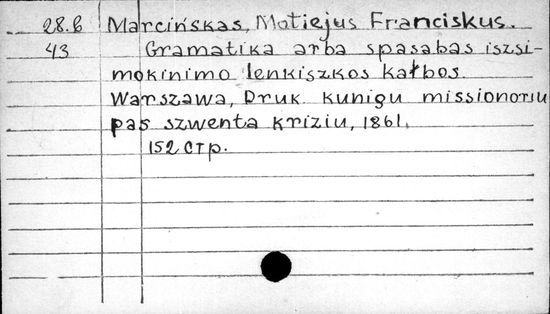 28.6 Marcińskas, Matiejus Franciskus.
43 Gramatika arba spasabas iszsi-
mokinimo lenkiszkos kałbos.
Warszawa, Druk. kunigu missionoriu
pas szwenta kriziu, 1861.
152 стр.